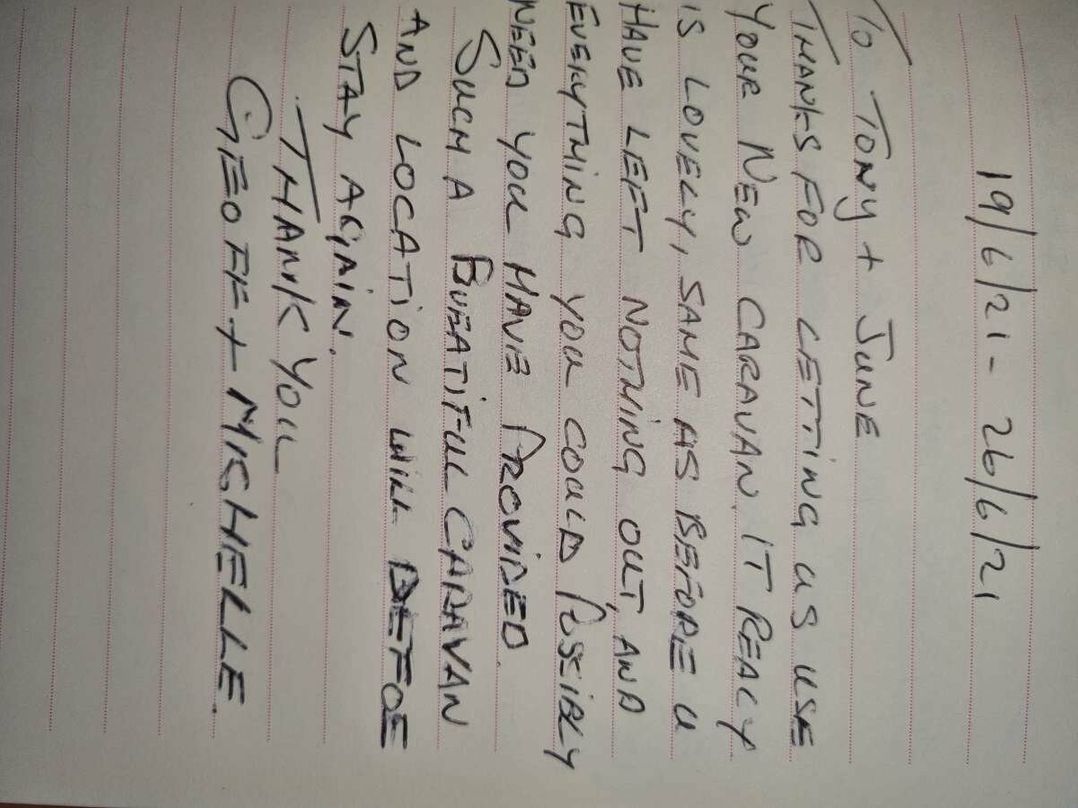 19/6/21 - 26/6/21
To TONY + JUNE
THANKS FOR LETTING US USE
YOUR NEW CARAVAN. IT REALY
IS LOVELY, SAME AS BEFORE U
HAVE LEFT NOTHING OUT, AND
EVERYTHING YOU COULD POSSIBLY
NEED YOU HAVE PROVIDED.
SUCH A BUEATIFUL CARAVAN
AND LOCATION WILL DEFOE
STAY AGAIN.
THANK YOU
GEOFF + MICHELLE.